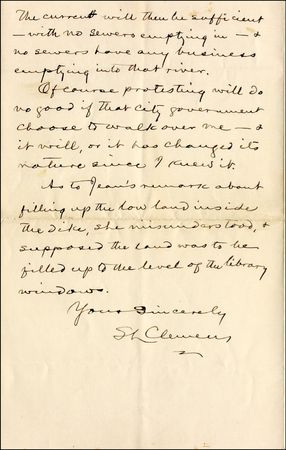 The current will then be sufficient
— with no sewers emptying in — &
no sewers have any business
emptying into that river.
Of course protesting will do
no good if that city government
choose to walk over me — &
it will, or it has changed its
nature since I knew it.
As to Jean's remark about
filling up the low land inside
the dike, she misunderstood, &
supposed the land was to be
filled up to the level of the library
windows.
Yours Sincerely
SL Clemens